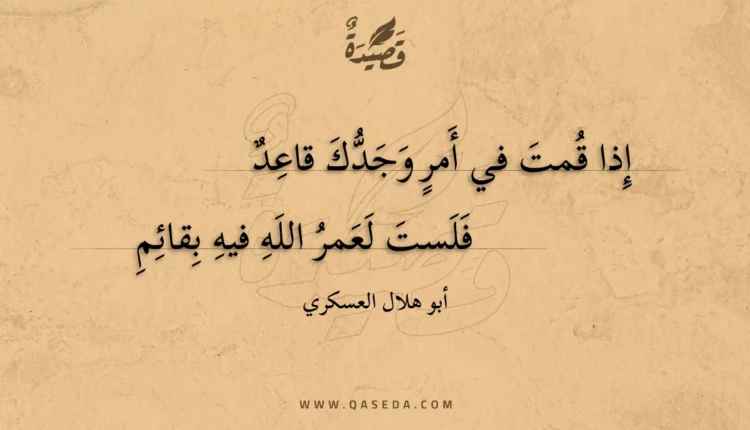 قَصِيْدَةٌ
إِذا قُمتَ في أَمرٍ وَجَدُّكَ قاعِدٌ
فَلَستَ لَعَمرُ اللَهِ فيهِ بِقائِمِ
أبو هلال العسكري
WWW.QASEDA.COM